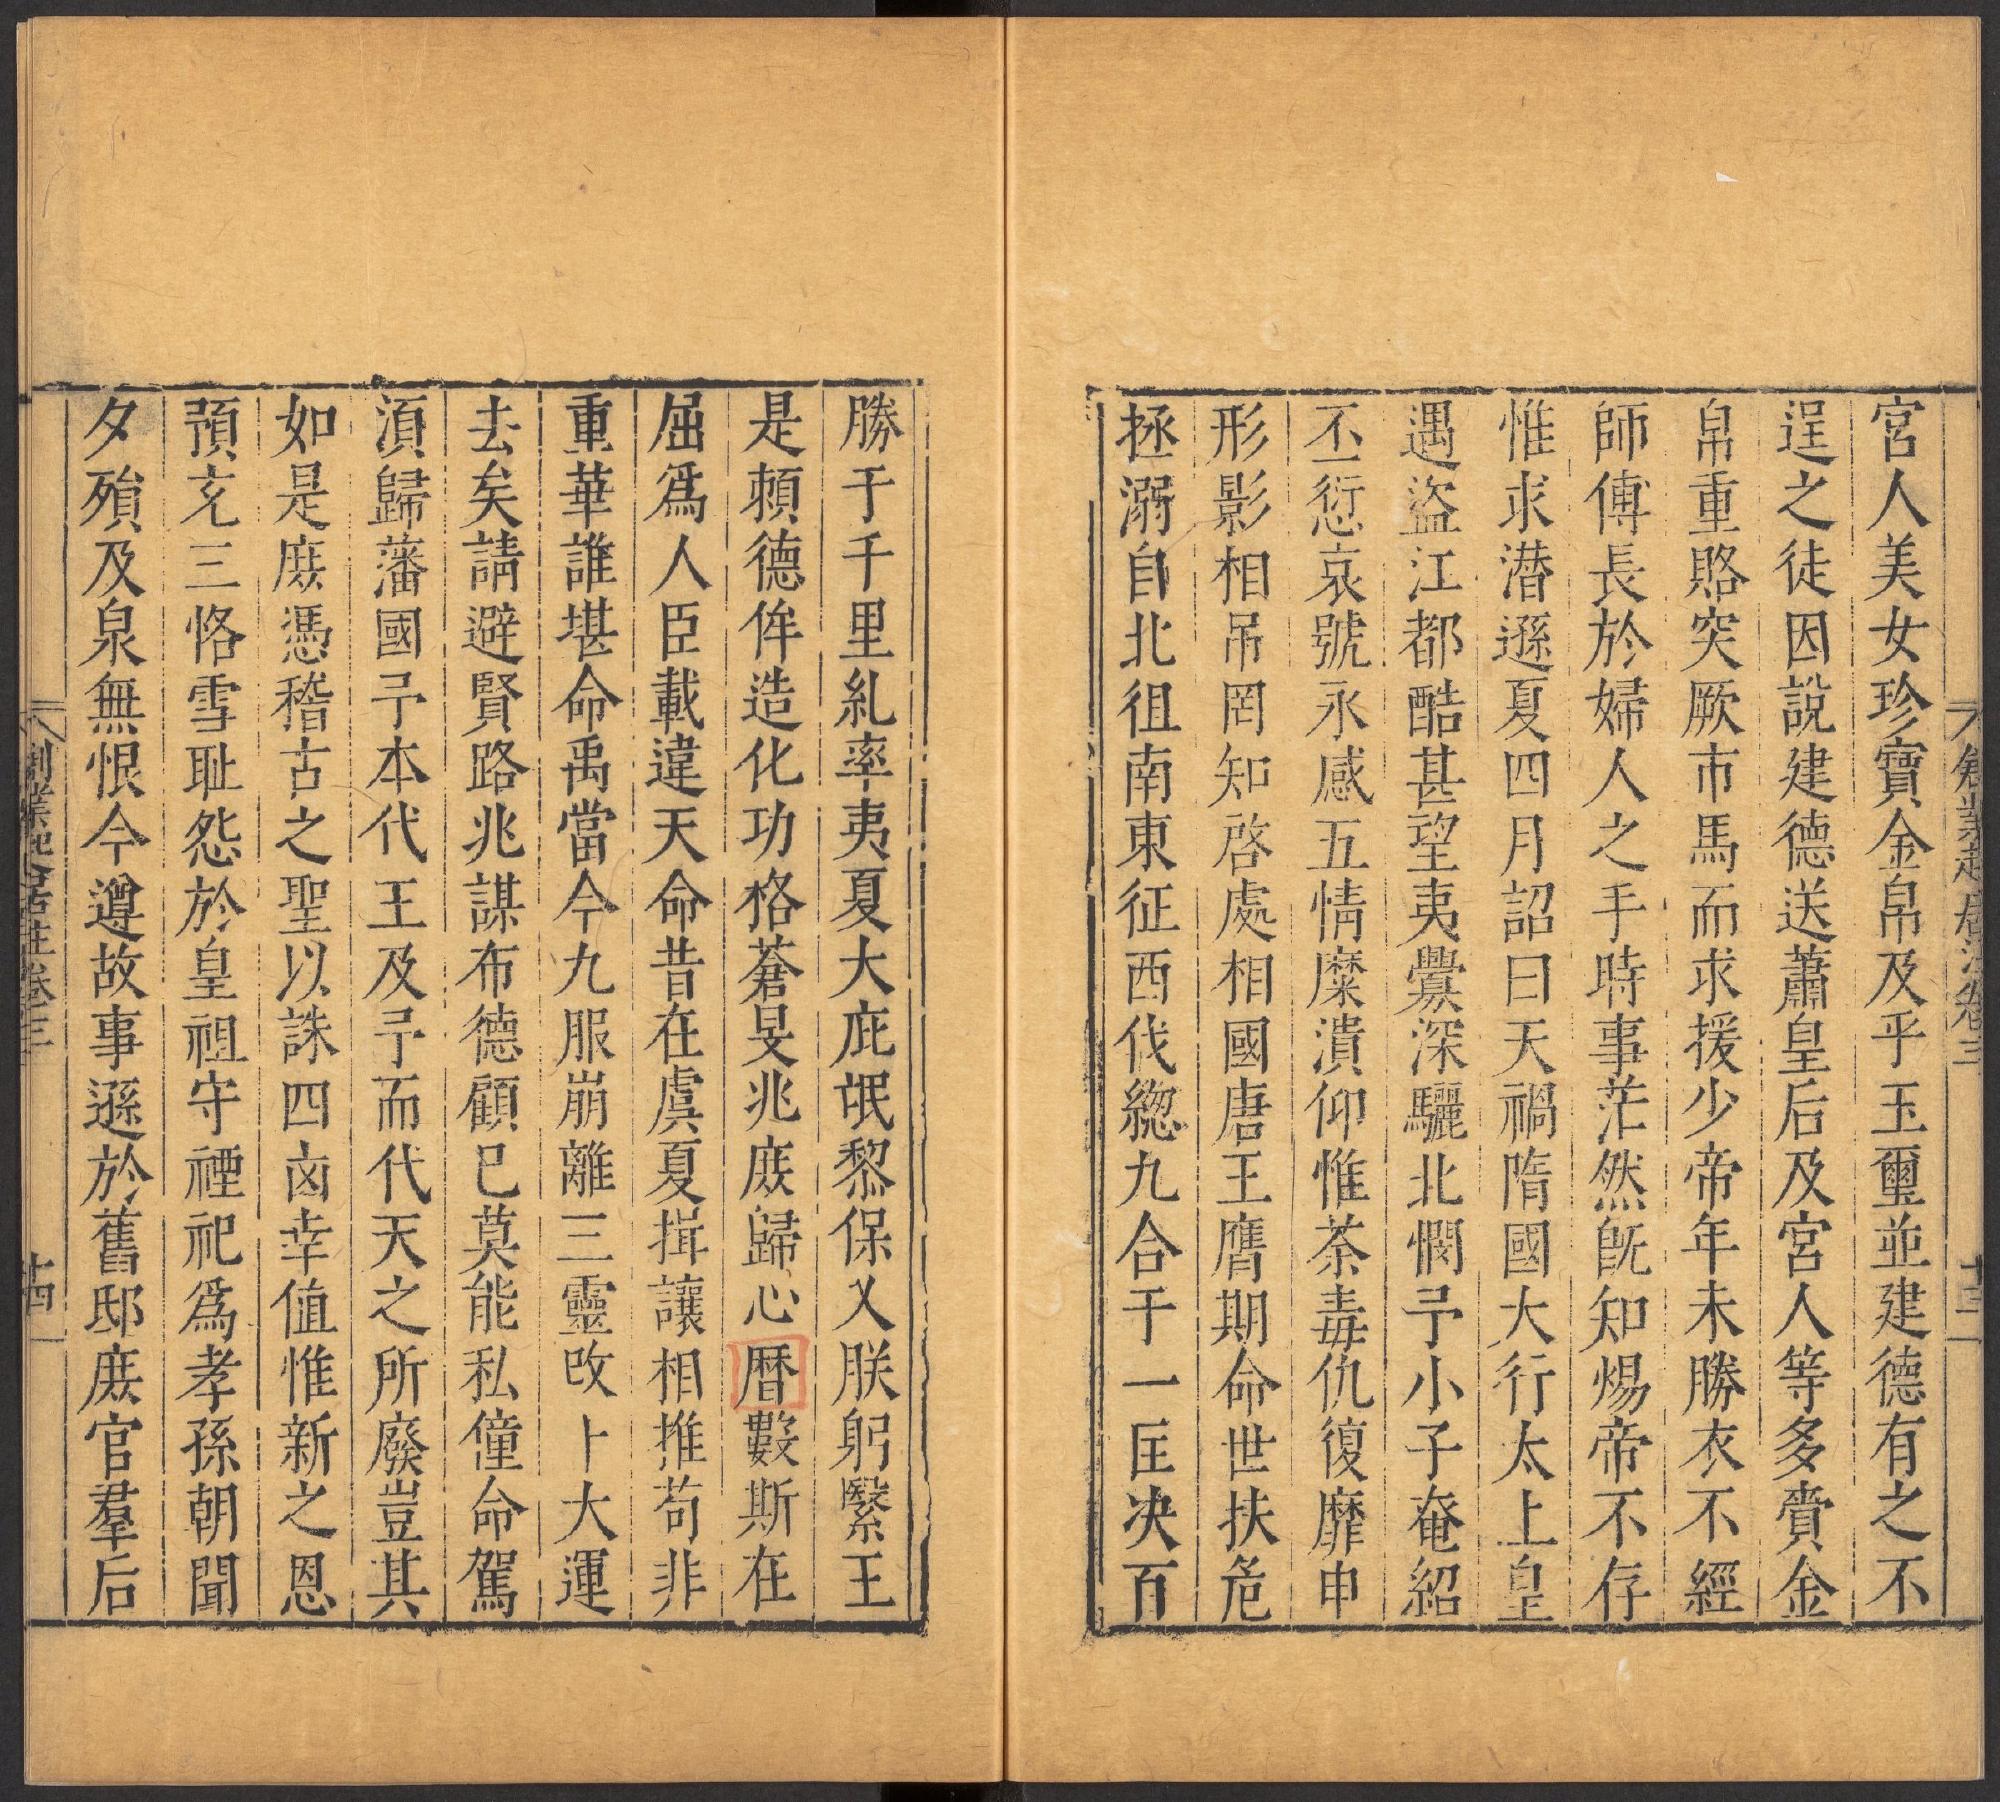 宮人美女珍寶金帛及乎玉璽並建德有之不
逞之徒因說建德送蕭皇后及宮人等多賫金
帛重賂突厥市馬而求援少帝年未勝衣不經
師傅長於婦人之手時事茫然既知煬帝不存
惟求潜遜夏四月詔曰天禍隋國大行太上皇
遇盜江都酷甚望夷釁深驪北憫予小子奄紹
丕愆哀號永感五情糜潰仰惟荼毒仇復靡申
形影相吊罔知啓處相國唐王膺期命世扶危
拯溺自北徂南東征西伐緫九合于一匡决百
勝于千里糺率夷夏大庇氓黎保乂朕躬繄王
是頼德侔造化功格蒼旻兆庶歸心暦數斯在
屈爲人臣載違天命昔在虞夏揖讓相推苟非
重華誰堪命禹當今九服崩離三靈改卜大運
去矣請避賢路兆謀布德顧已莫能私僮命駕
湏歸藩國予本代王及予而代天之所廢豈其
如是庶憑稽古之聖以誅四凶幸值惟新之恩
預充三恪雪耻怨於皇祖守禋祀爲孝孫朝聞
夕殞及泉無恨今遵故事遜於舊邸庶官羣后
創業起居注卷三
十四